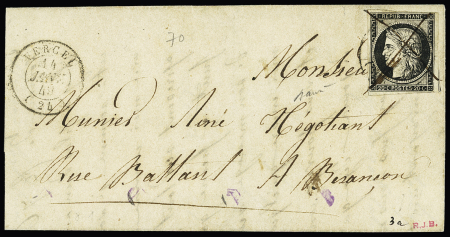 70
VERCEL
14
JANV.
49
(24)
REPUB. FRANC.
20 C. POSTES 20 C.
Monsieur
Munier Aîné Négotiant
Rue Battant A Besançon
3a
R.J.B.